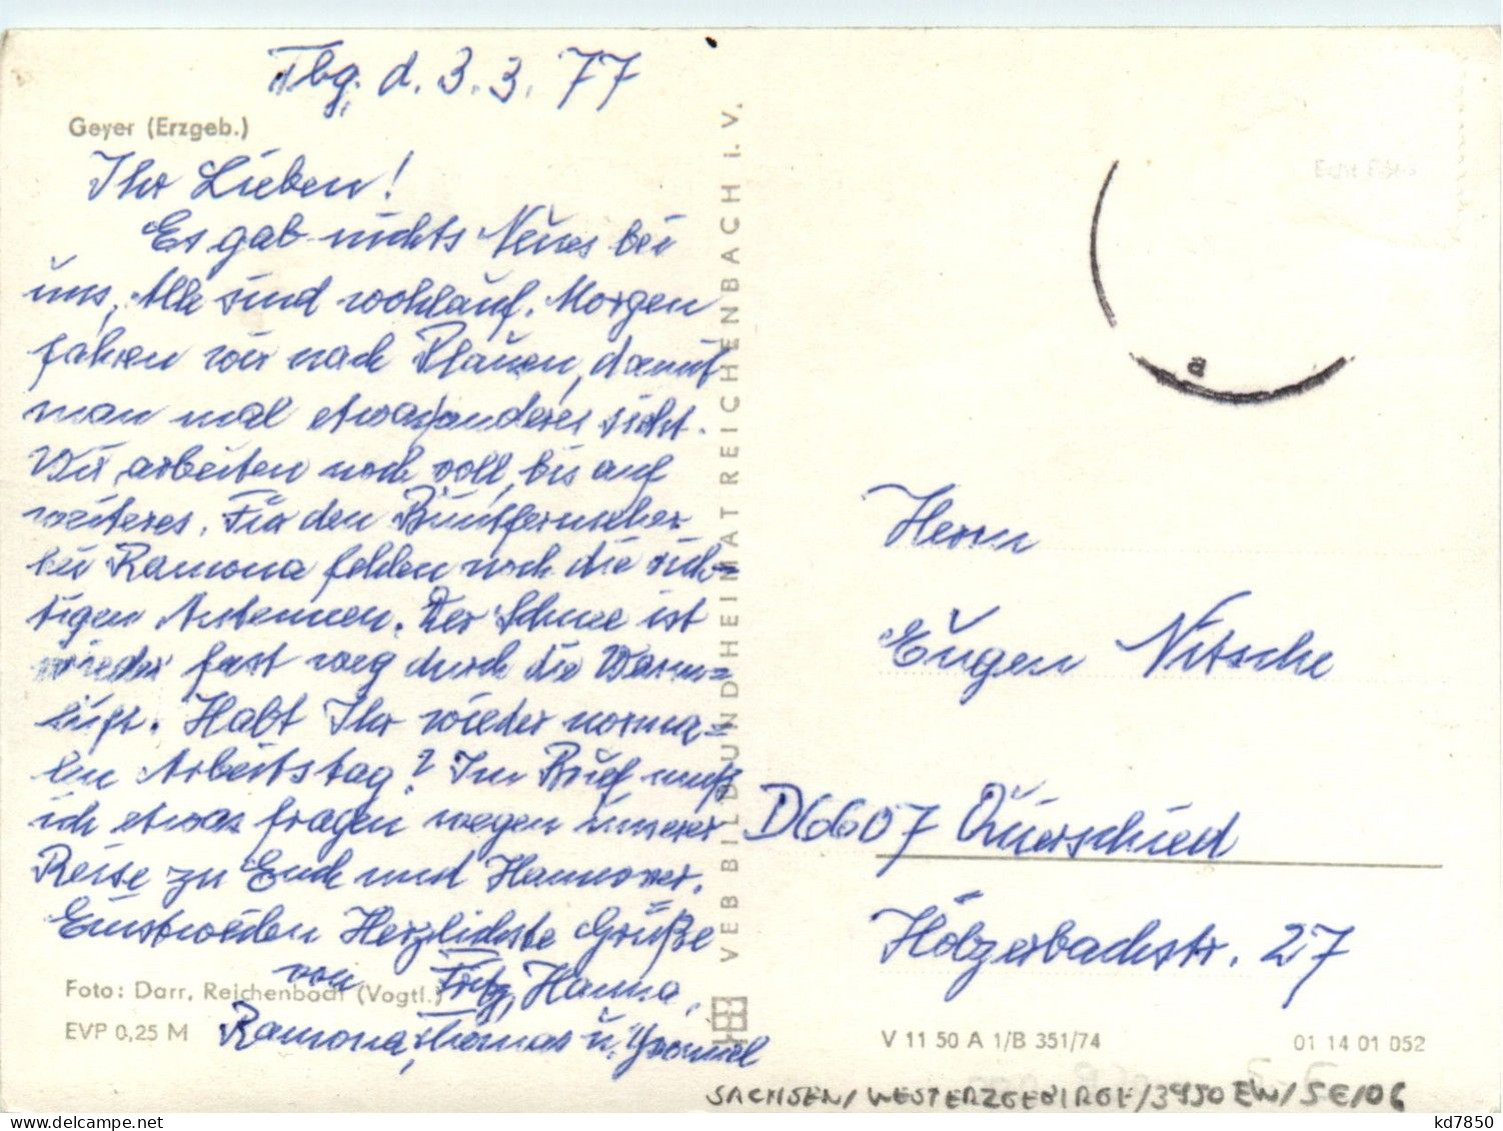 Tbg. d. 3.3.77
Geyer (Erzgeb.)
Ihr Lieben!
Es gab nichts Neues bei
uns, Alle sind wohlauf. Morgen
fahren wir nach Plauen, damit
man mal etwas anderes sieht.
Wir arbeiten noch voll, bis auf
weiteres. Für den Buntfernseher
bei Ramona fehlen noch die rich=
tigen Antennen. Der Schnee ist
wieder fast weg durch die Warm=
luft. Habt Ihr wieder norma=
len Arbeitstag? Im Brief muß
ich etwas fragen wegen unserer
Reise zu Euch und Hannover.
Einstweilen Herzlichste Grüße
von Fritz, Hanna,
Ramona, Thomas u.
Foto: Darr, Reichenbach (Vogtl.)
EVP 0,25 M
VEB BILD UND HEIMAT REICHENBACH i. V.
Echt Foto
a
Herrn
Eugen Nitsche
D6607 Quierschied
Holzerbachstr. 27
V 11 50 A 1/B 351/74
01 14 01 052
SACHSEN/WESTERZGEBIRGE/3450 EW/SE/06
delcampe.net
kd7850